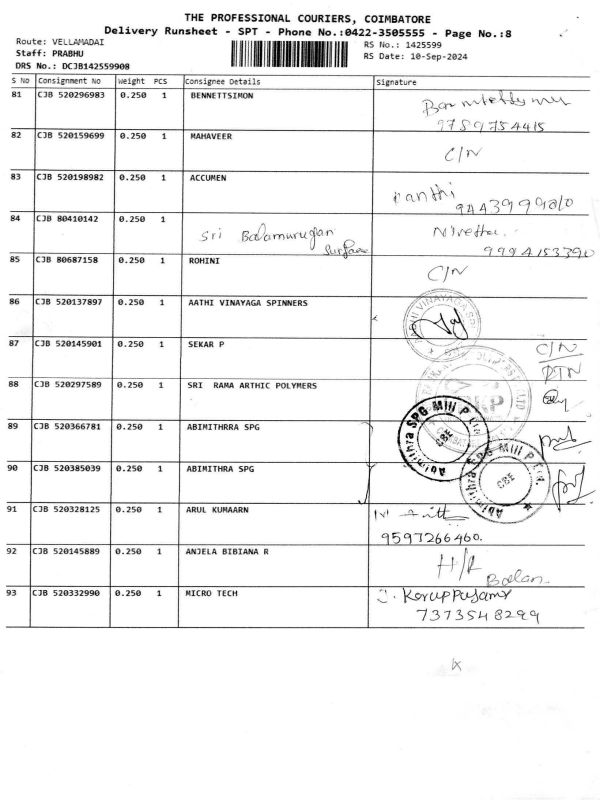 THE PROFESSIONAL COURIERS, COIMBATORE
Delivery Runsheet - SPT - Phone No.:0422-3505555 - Page No.:8
Route: VELLAMADAI
Staff: PRABHU
DRS No.: DCJB142559908
RS No.: 1425599
RS Date: 10-Sep-2024
S No Consignment No Weight PCS Consignee Details Signature
81 CJB 520296983 0.250 1 BENNETTSIMON
9789754415
82 CJB 520159699 0.250 1 MAHAVEER C/N
83 CJB 520198982 0.250 1 ACCUMEN
84 CJB 80410142 0.250 1 Sri Balamurugan Surface
9994153390
85 CJB 80687158 0.250 1 ROHINI C/N
86 CJB 520137897 0.250 1 AATHI VINAYAGA SPINNERS
87 CJB 520145901 0.250 1 SEKAR P C/N
88 CJB 520297589 0.250 1 SRI RAMA ARTHIC POLYMERS
89 CJB 520366781 0.250 1 ABIMITHRRA SPG Abimithra SPG Mill P Ltd. CBE
90 CJB 520385039 0.250 1 ABIMITHRRA SPG Abimithra SPG Mill P Ltd. CBE
91 CJB 520328125 0.250 1 ARUL KUMAARN
9597266460.
92 CJB 520145889 0.250 1 ANJELA BIBIANA R H/R
Balan
93 CJB 520332990 0.250 1 MICRO TECH J. Karuppusamy
7373548299